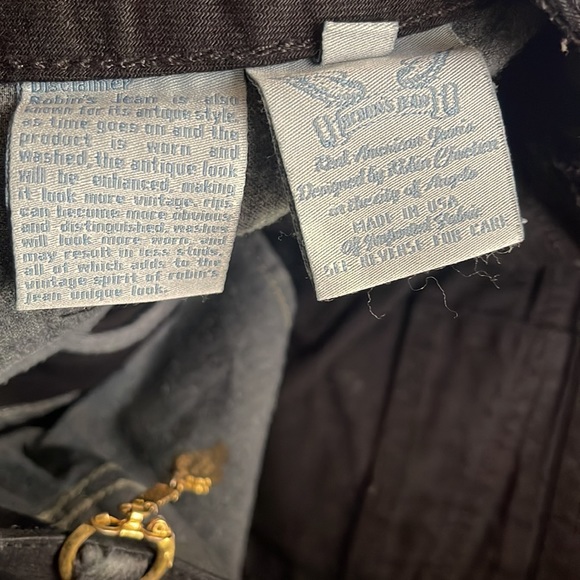 Disclaimer
Robin's Jean is also
known for its antique style.
as time goes on and the
product is worn and
washed the antique look
will be enhanced, making
it look more vintage. rips
can become more obvious
and distinguished, washes
will look more worn and
may result in less studs,
all of which adds to the
vintage spirit of robin's
Jean unique look.
ROBIN'S JEAN
Real American Jeans
Designed by Robin Chretien
in the city of Angels
MADE IN USA
Of Imported Fabric
SEE REVERSE FOR CARE